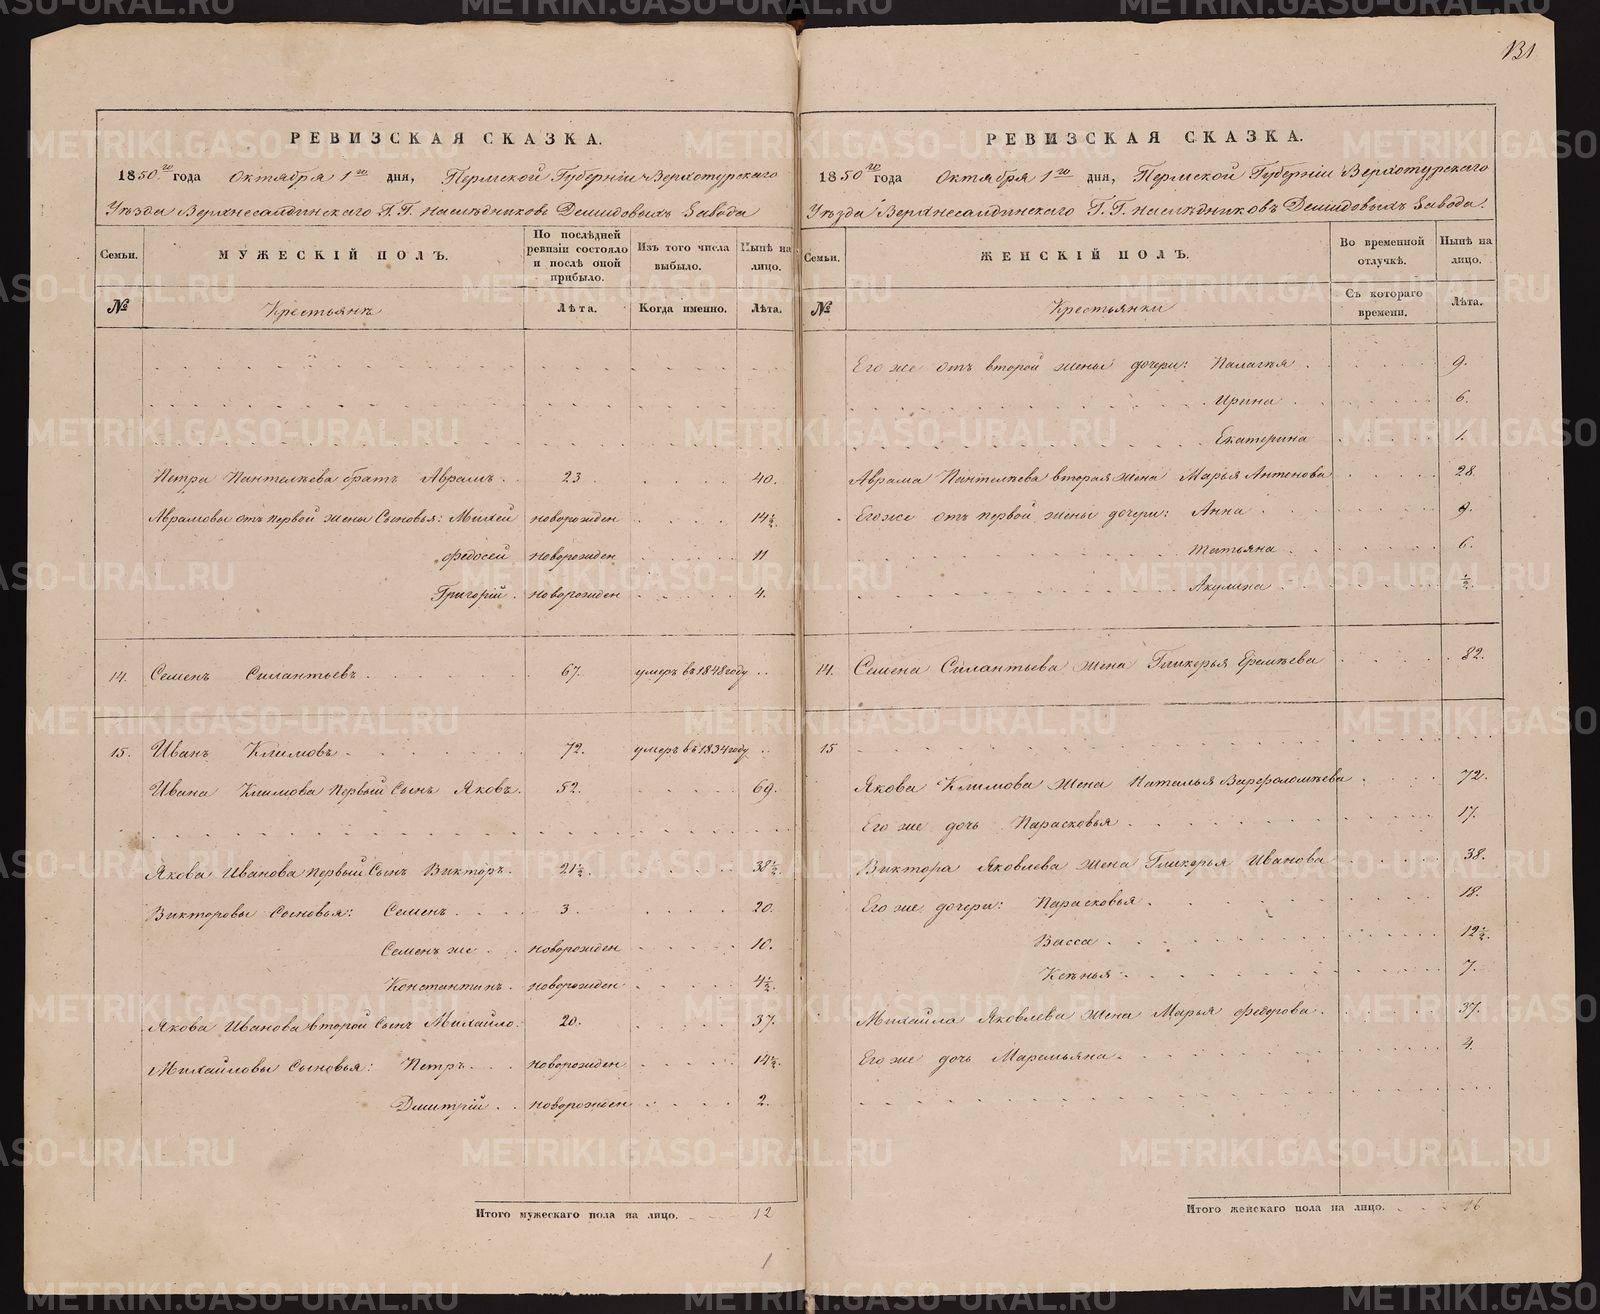 131
РЕВИЗСКАЯ СКАЗКА.
1850го года Октября 1го дня, Пермской Губерніи Верхотурскаго
Уѣзда Верхнесалдинскаго Г.Г. наслѣдниковъ Демидовыхъ Завода
Семьи. МУЖЕСКІЙ ПОЛЪ. По послѣдней ревизіи состояло и послѣ оной прибыло. Изъ того числа выбыло. Нынѣ на лицо.
№ Крестьянъ Лѣта. Когда именно. Лѣта.
Петра Пантелѣева братъ Аврамъ. 23 40.
Аврамовы отъ первой жены Сыновья: Михей новорожден 14½
Федосей новорожден 11
Григорій. новорожден 4.
14. Семенъ Силантьевъ 67. умеръ въ 1848 году
15. Иванъ Климовъ 72. умеръ въ 1834 году
Ивана Климова первый Сынъ Яковъ. 52. 69.
Якова Иванова первый Сынъ Викторъ. 21½. 38½.
Викторовы Сыновья: Семенъ. 3. 20.
Семенъ же новорожден 10.
Константинъ. новорожден 4½.
Якова Иванова второй Сынъ Михайло. 20. 37.
Михайловы Сыновья: Петръ. новорожден 14½.
Дмитрій. новорожден 2.
Итого мужескаго пола на лицо. 12
1
РЕВИЗСКАЯ СКАЗКА.
1850го года Октября 1го дня, Пермской Губерніи Верхотурскаго
Уѣзда Верхнесалдинскаго Г.Г. наслѣдниковъ Демидовыхъ Завода.
Семьи. ЖЕНСКІЙ ПОЛЪ. Во временной отлучкѣ. Нынѣ на лицо.
№ Крестьянки Съ котораго времени. Лѣта.
Его же отъ второй жены дочери: Палагья 9.
Ирина 6.
Екатерина 1.
Аврама Пантелѣева вторая жена Марья Антонова 28
Его же отъ первой жены дочери: Анна 9.
Татьяна 6.
Акулина ½.
14. Семена Силантьева жена Гликерья Еремѣева 82.
15
Якова Климова жена Наталья Варфоломѣева 72.
Его же дочь Парасковья 17.
Виктора Яковлева жена Гликерья Иванова 38.
Его же дочери: Парасковья 18.
Васса 12½.
Ксѣнья 7.
Михайла Яковлева жена Марья Федорова 37.
Его же дочь Маремьяна 4.
Итого женскаго пола на лицо. 16
METRIKI.GASO-URAL.RU